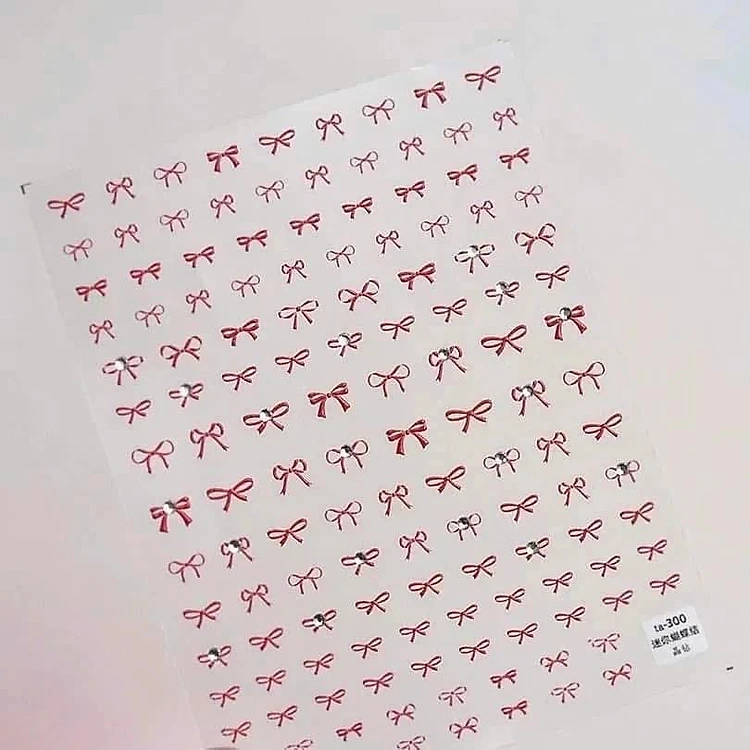 ta-300
迷你蝴蝶结
晶钻